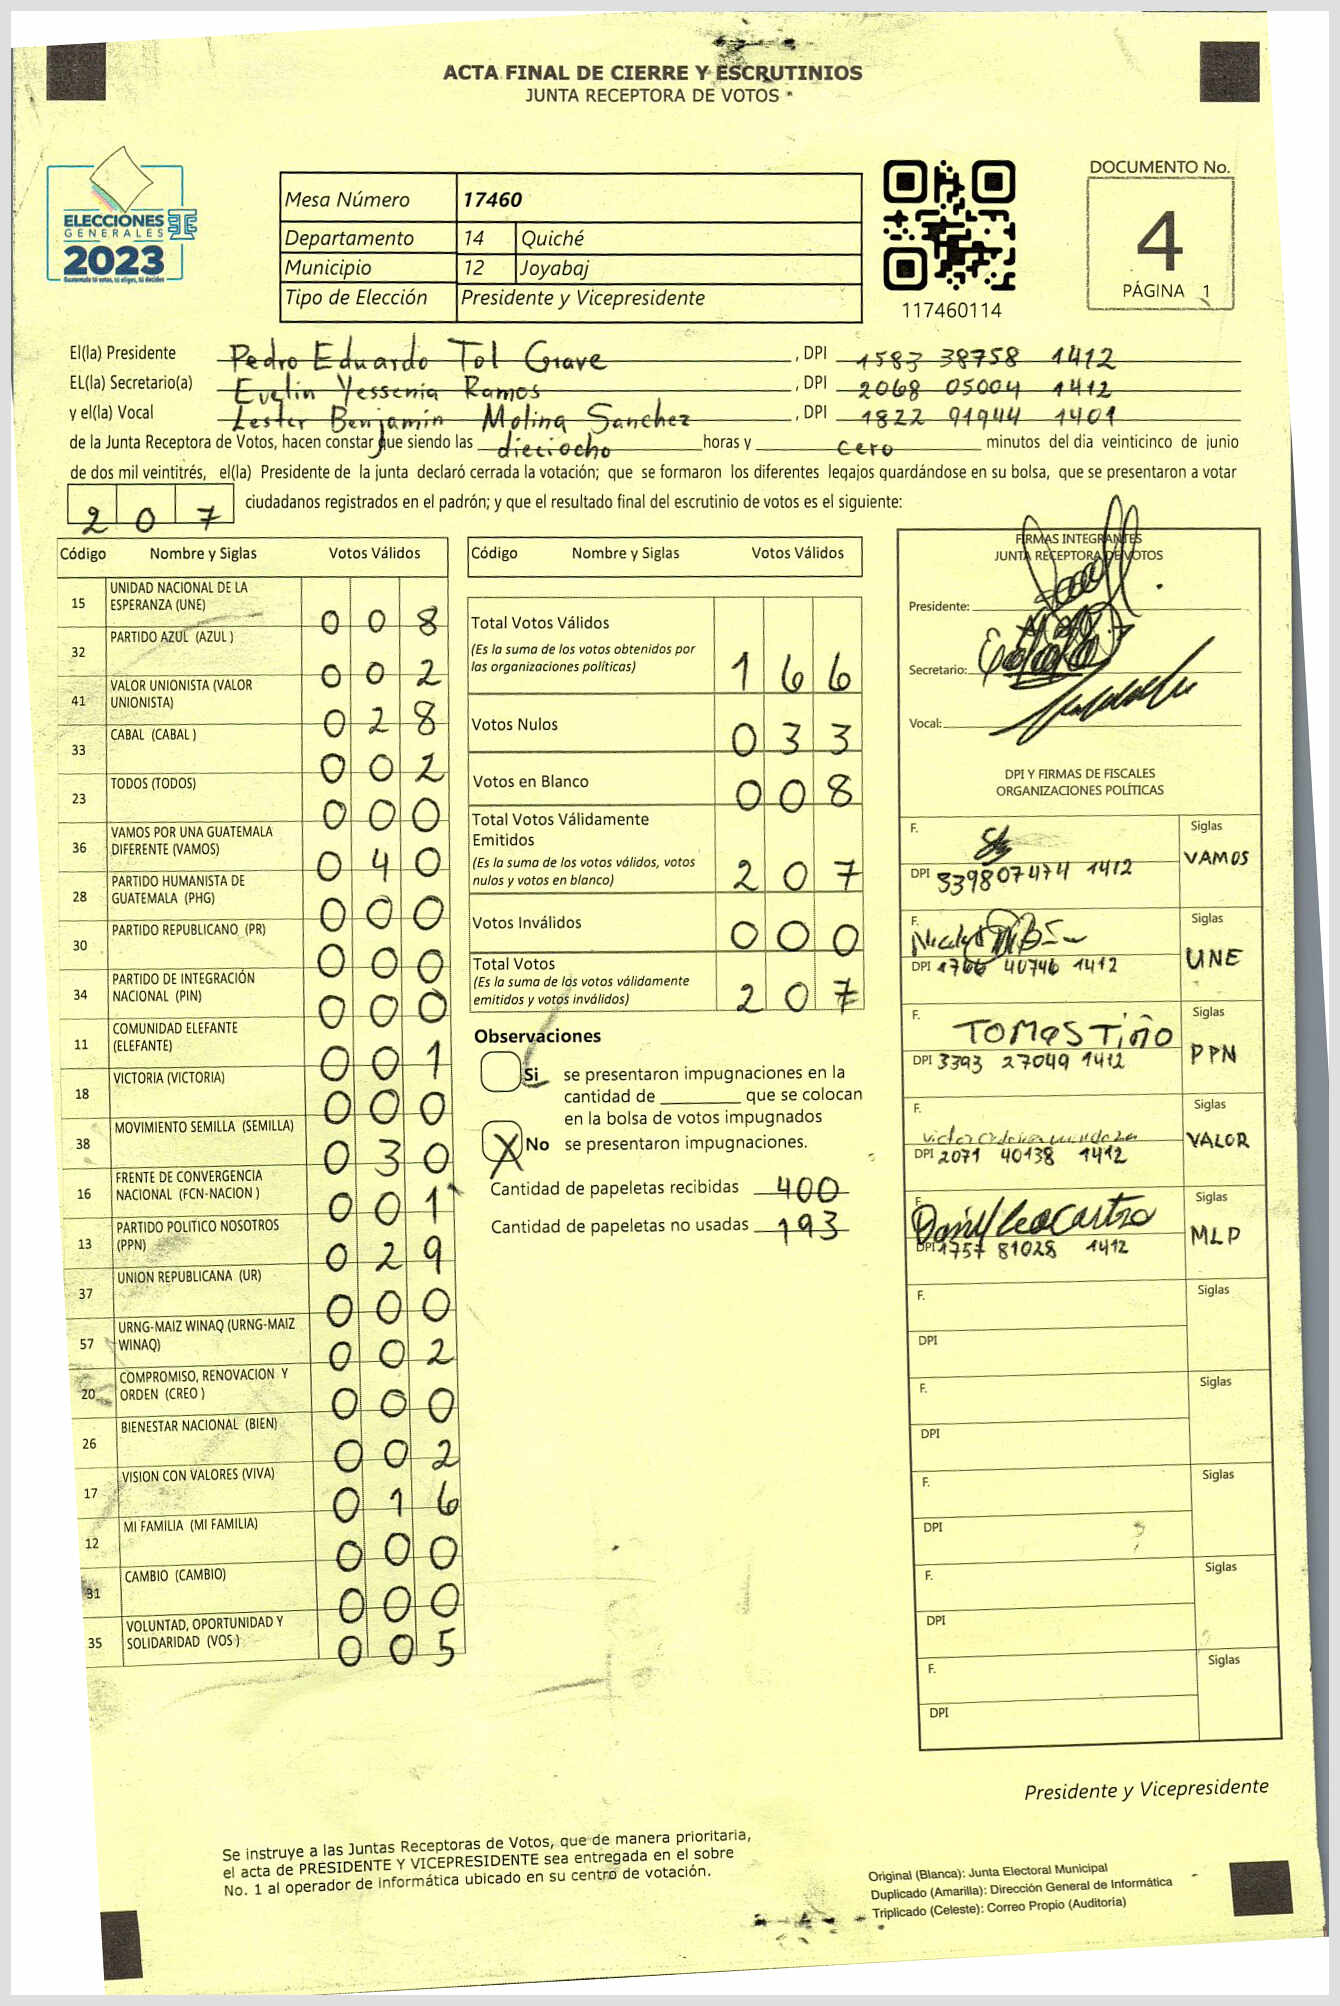 ACTA FINAL DE CIERRE Y ESCRUTINIOS
JUNTA RECEPTORA DE VOTOS
ELECCIONES
GENERALES
2023
Guatemala tú votas, tú eliges, tú decides
Mesa Número 17460
Departamento 14 Quiché
Municipio 12 Joyabaj
Tipo de Elección Presidente y Vicepresidente
117460114
DOCUMENTO No.
4
PÁGINA 1
El(la) Presidente Pedro Eduardo Tol Grave, DPI 1583 38758 1412
EL(la) Secretario(a) Evelin Yessenia Ramos, DPI 2068 05004 1412
y el(la) Vocal Lester Benjamín Molina Sanchez, DPI 1822 91944 1401
de la Junta Receptora de Votos, hacen constar que siendo las dieciocho horas y cero minutos del día veinticinco de junio
de dos mil veintitrés, el(la) Presidente de la junta declaró cerrada la votación; que se formaron los diferentes legajos quardándose en su bolsa, que se presentaron a votar
207 ciudadanos registrados en el padrón; y que el resultado final del escrutinio de votos es el siguiente:
Código Nombre y Siglas Votos Válidos
15 UNIDAD NACIONAL DE LA
ESPERANZA (UNE) 008
32 PARTIDO AZUL (AZUL ) 002
41 VALOR UNIONISTA (VALOR
UNIONISTA) 028
33 CABAL (CABAL ) 002
23 TODOS (TODOS) 000
36 VAMOS POR UNA GUATEMALA
DIFERENTE (VAMOS) 040
28 PARTIDO HUMANISTA DE
GUATEMALA (PHG) 000
30 PARTIDO REPUBLICANO (PR) 000
34 PARTIDO DE INTEGRACIÓN
NACIONAL (PIN) 000
11 COMUNIDAD ELEFANTE
(ELEFANTE) 001
18 VICTORIA (VICTORIA) 000
38 MOVIMIENTO SEMILLA (SEMILLA) 030
16 FRENTE DE CONVERGENCIA
NACIONAL (FCN-NACION ) 001
13 PARTIDO POLITICO NOSOTROS
(PPN) 029
37 UNION REPUBLICANA (UR) 000
57 URNG-MAIZ WINAQ (URNG-MAIZ
WINAQ) 002
20 COMPROMISO, RENOVACION Y
ORDEN (CREO ) 000
26 BIENESTAR NACIONAL (BIEN) 002
17 VISION CON VALORES (VIVA) 016
12 MI FAMILIA (MI FAMILIA) 000
31 CAMBIO (CAMBIO) 000
35 VOLUNTAD, OPORTUNIDAD Y
SOLIDARIDAD (VOS ) 005
Código Nombre y Siglas Votos Válidos
Total Votos Válidos
(Es la suma de los votos obtenidos por
las organizaciones políticas) 166
Votos Nulos 033
Votos en Blanco 008
Total Votos Válidamente
Emitidos
(Es la suma de los votos válidos, votos
nulos y votos en blanco) 207
Votos Inválidos 000
Total Votos
(Es la suma de los votos válidamente
emitidos y votos inválidos) 207
Observaciones
Si se presentaron impugnaciones en la
cantidad de ________ que se colocan
en la bolsa de votos impugnados
X No se presentaron impugnaciones.
Cantidad de papeletas recibidas 400
Cantidad de papeletas no usadas 193
FIRMAS INTEGRANTES
JUNTA RECEPTORA DE VOTOS
Presidente:
Secretario:
Vocal:
DPI Y FIRMAS DE FISCALES
ORGANIZACIONES POLÍTICAS
F. Siglas
DPI 339807474 1412 VAMOS
F. Siglas
DPI 1766 40746 1412 UNE
F. TOMAS TIÑO Siglas
DPI 3393 27049 1412 PPN
F. Siglas
DPI 2071 40138 1412 VALOR
F. Siglas
DPI 1757 81028 1412 MLP
F. Siglas
DPI
F. Siglas
DPI
F. Siglas
DPI
F. Siglas
DPI
F. Siglas
DPI
Presidente y Vicepresidente
Se instruye a las Juntas Receptoras de Votos, que de manera prioritaria,
el acta de PRESIDENTE Y VICEPRESIDENTE sea entregada en el sobre
No. 1 al operador de informática ubicado en su centro de votación.
Original (Blanca): Junta Electoral Municipal
Duplicado (Amarilla): Dirección General de Informática
Triplicado (Celeste): Correo Propio (Auditoría)